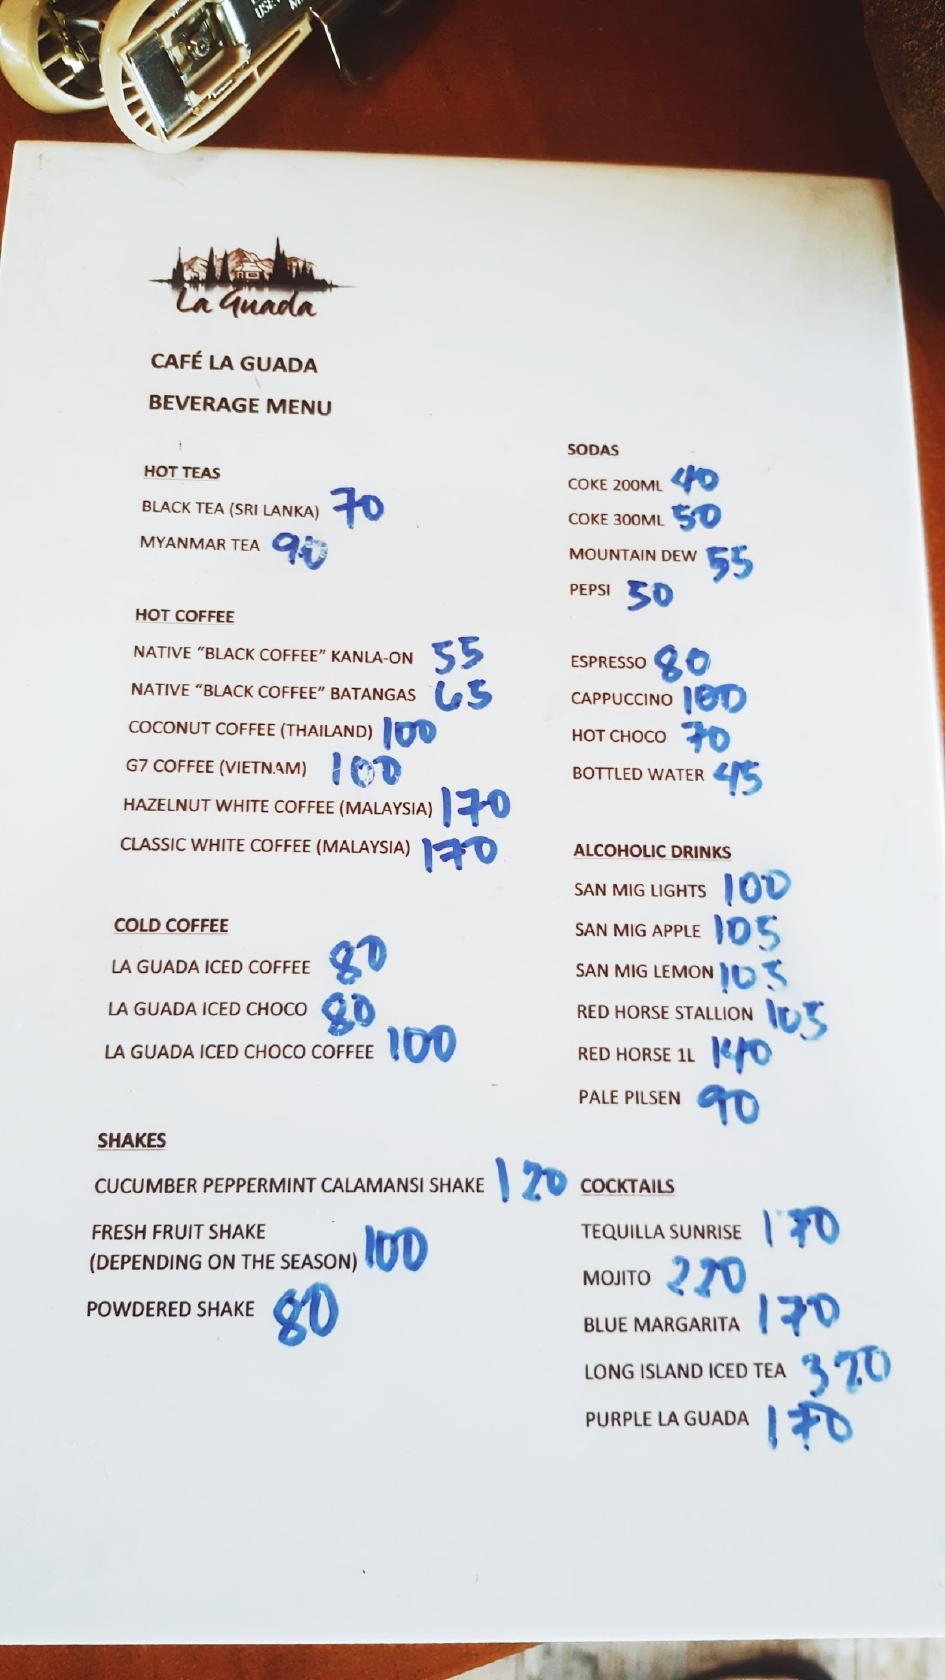 USE
La Guada
CAFÉ LA GUADA
BEVERAGE MENU
HOT TEAS
BLACK TEA (SRI LANKA) 70
MYANMAR TEA 90
HOT COFFEE
NATIVE “BLACK COFFEE” KANLA-ON 55
NATIVE “BLACK COFFEE” BATANGAS 65
COCONUT COFFEE (THAILAND) 100
G7 COFFEE (VIETNAM) 100
HAZELNUT WHITE COFFEE (MALAYSIA) 170
CLASSIC WHITE COFFEE (MALAYSIA) 170
COLD COFFEE
LA GUADA ICED COFFEE 80
LA GUADA ICED CHOCO 80
LA GUADA ICED CHOCO COFFEE 100
SHAKES
CUCUMBER PEPPERMINT CALAMANSI SHAKE 120
FRESH FRUIT SHAKE
(DEPENDING ON THE SEASON) 100
POWDERED SHAKE 80
SODAS
COKE 200ML 40
COKE 300ML 50
MOUNTAIN DEW 55
PEPSI 50
ESPRESSO 80
CAPPUCCINO 100
HOT CHOCO 70
BOTTLED WATER 45
ALCOHOLIC DRINKS
SAN MIG LIGHTS 100
SAN MIG APPLE 105
SAN MIG LEMON 105
RED HORSE STALLION 105
RED HORSE 1L 140
PALE PILSEN 90
COCKTAILS
TEQUILLA SUNRISE 170
MOJITO 220
BLUE MARGARITA 170
LONG ISLAND ICED TEA 320
PURPLE LA GUADA 170